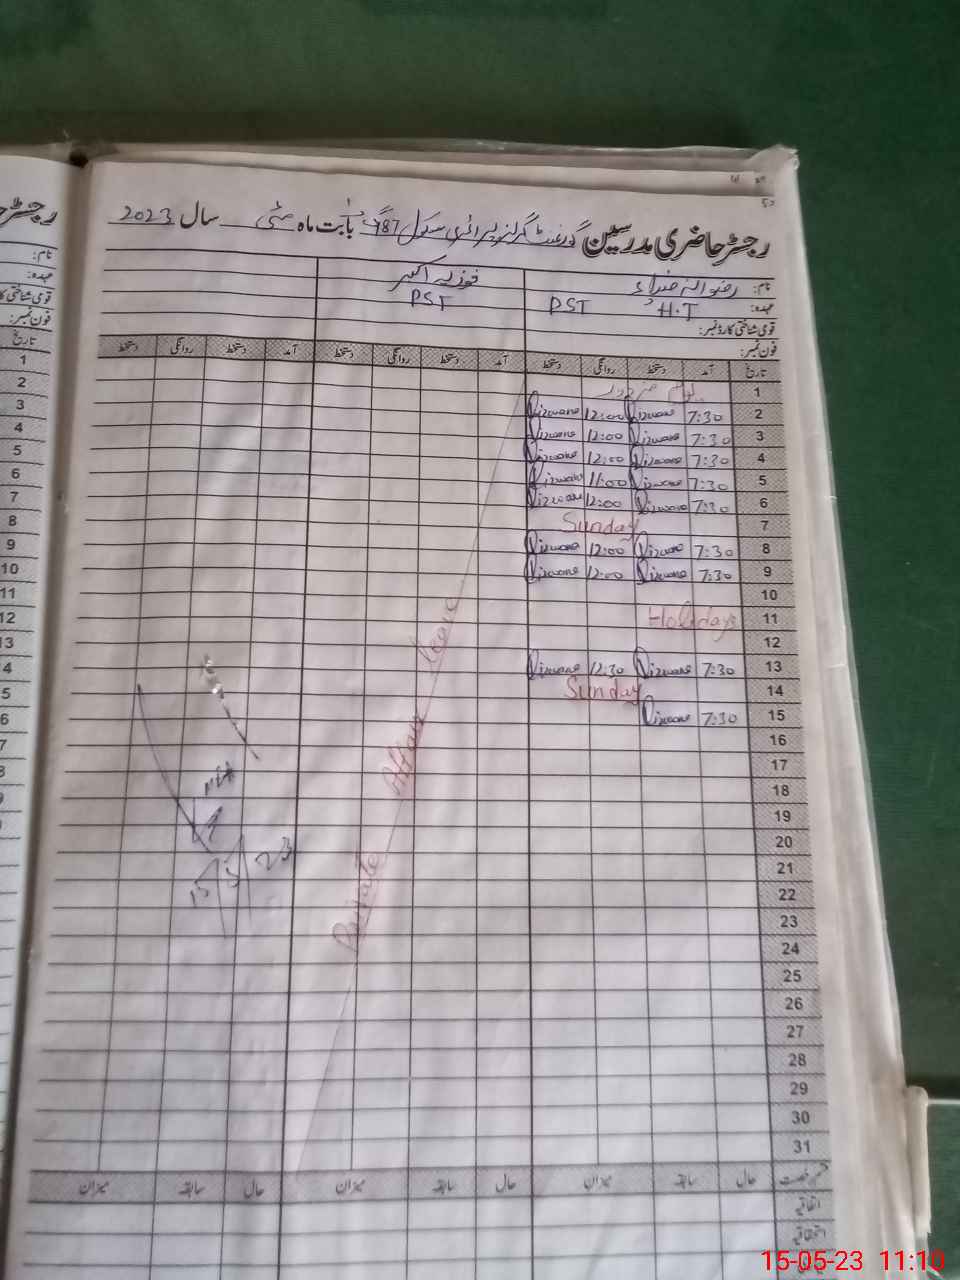 رجسٹر حاضری مدرسین گورنمنٹ گرلز پرائمری سکول 687 گ ب بابت ماہ مئی سال 2023
نام: رضوانہ فوزیہ اکبر
عہدہ: H.T PST PST
قومی شناختی کارڈ نمبر:
فون نمبر:
تاریخ آمد دستخط روانگی دستخط آمد دستخط روانگی دستخط آمد دستخط روانگی دستخط
1 یوم مزدور
2 7:30 Rizwana 12:00 Rizwana
3 7:30 Rizwana 12:00 Rizwana
4 7:30 Rizwana 12:00 Rizwana
5 7:30 Rizwana 11:00 Rizwana
6 7:30 Rizwana 12:00 Rizwana
7 Sunday
8 7:30 Rizwana 12:00 Rizwana
9 7:30 Rizwana 12:00 Rizwana
10
11 Holidays
12
13 7:30 Rizwana 12:30 Rizwana
14 Sunday
15 7:30 Rizwana
16
17
18
19
20
21
22
23
24
25
26
27
28
29
30
31
Private Affair leave
15/5/23
حال سابقہ میزان حال سابقہ میزان حال سابقہ میزان
اتفاقیہ
استحقاقیہ
رجسٹر
نام:
عہدہ:
قومی شناختی
فون نمبر:
تاریخ
1
2
3
4
5
6
7
8
9
10
11
12
13
15-05-23 11:10